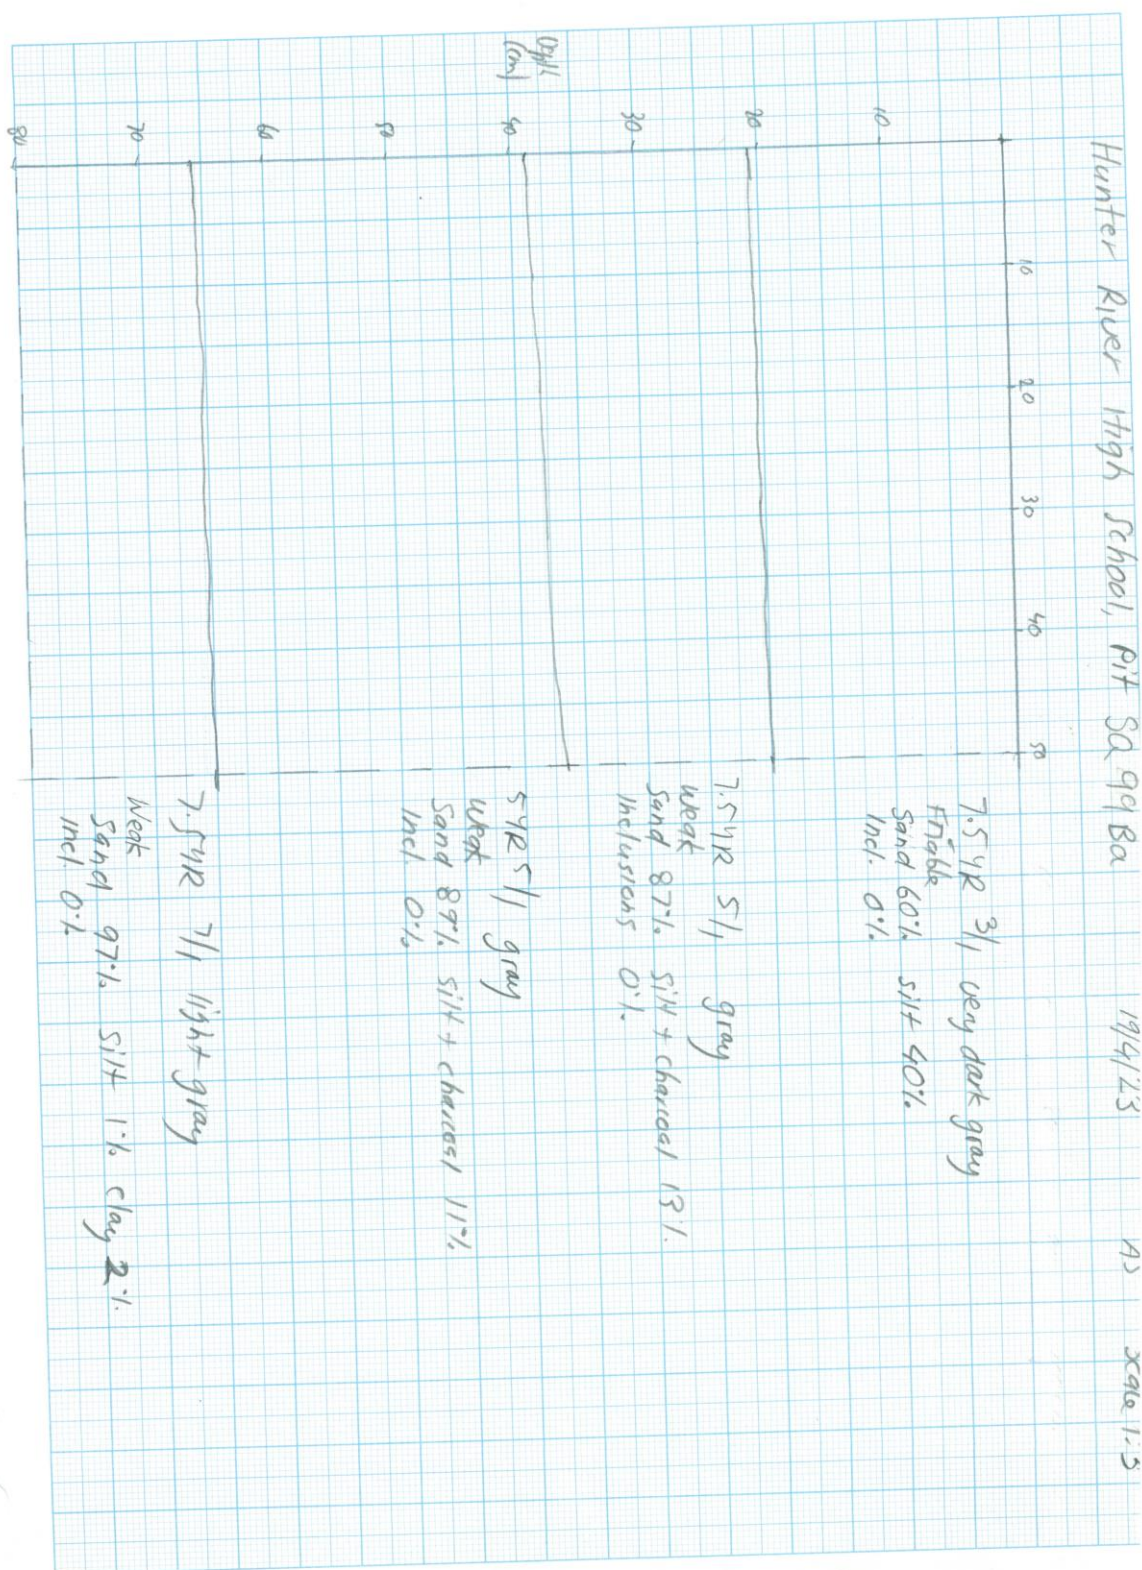 Hunter River High School, Pit Sq 99 Ba 19/4/23 AJ scale 1:5
10 20 30 40 50
Depth
(cm)
10
20
30
40
50
60
70
80
7.5 YR 3/1 very dark gray
Friable
Sand 60% silt 40%
Incl. 0%
7.5 YR 5/1 gray
Weak
Sand 87% silt + charcoal 13%
Inclusions 0%
5 YR 5/1 gray
Weak
Sand 89% silt + charcoal 11%
Incl. 0%
7.5 YR 7/1 light gray
Weak
Sand 97% silt 1% clay 2%
Incl. 0%